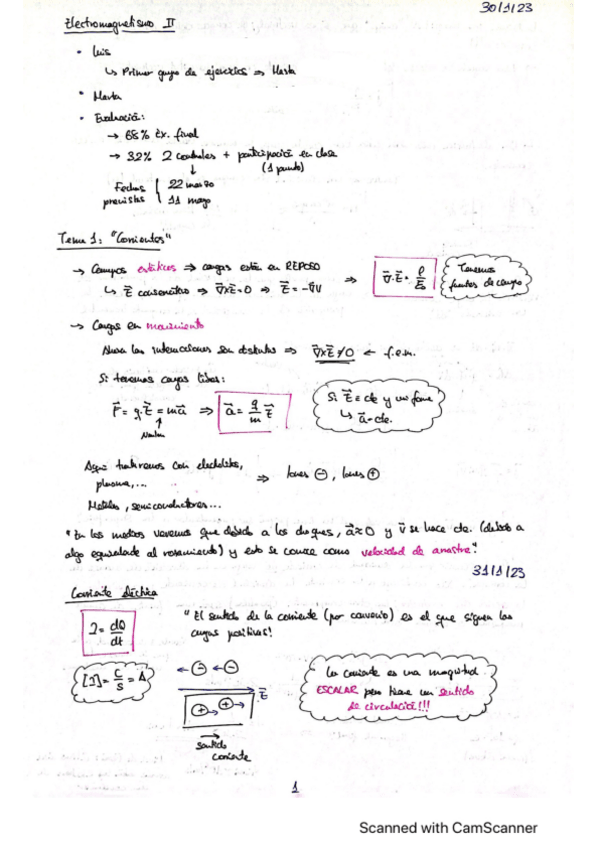 30/1/23
Electromagnetismo II
• Luis
↳ Primer grupo de ejercicios ⇒ Marta
• Marta
• Evaluació:
→ 68% Ex. final
→ 32% 2 controles + participació en clase
(1 punto)
↓
Fechas previstas
22 marzo
11 mayo
Tema 1: "Corrientes"
→ Campos estáticos ⇒ cargas están en REPOSO
↳ E⃗ conservativo ⇒ ∇⃗×E⃗=0 ⇒ E⃗ = -∇⃗V
⇒ ∇⃗·E⃗ = ρ/ε₀
Tenemos fuentes de campo
→ Cargas en movimiento
Ahora las interacciones son distintas ⇒ ∇⃗×E⃗≠0 ← f.e.m.
Si tenemos cargas libres:
F⃗ = q·E⃗ = ma⃗ ⇒ a⃗ = q/m E⃗
↑
Newton
Si E⃗ = cte y uniforme
↳ a⃗ = cte.
Aquí trataremos con electrolitos,
plasma,... ⇒ Iones ⊖, Iones ⊕
Metales, semiconductores...
"En los medios veremos que debido a los choques, a⃗≈0 y v⃗ se hace cte. (debido a
algo equivalente al rozamiento) y esto se conoce como velocidad de arrastre".
31/1/23
Corriente eléctrica
I = dQ/dt
"El sentido de la corriente (por convenio) es el que siguen las
cargas positivas!
[I] = C/s = A
←⊖ ←⊖
E⃗
⊕→ ⊕→
→
sentido
corriente
La corriente es una magnitud
ESCALAR pero tiene un sentido
de circulació!!!
1
Scanned with CamScanner